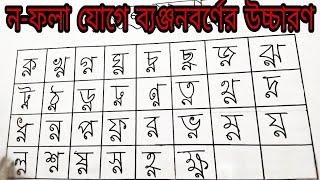 ন-ফলা যোগে ব্যঞ্জনবর্ণের উচ্চারণ
ক্ন খ্ন গ্ন ঘ্ন চ্ন ছ্ন জ্ন ঝ্ন
ট্ন ঠ্ন ড্ন ঢ্ন ণ্ন ত্ন থ্ন দ্ন
ধ্ন ন্ন প্ন ফ্ন ব্ন ভ্ন ম্ন য্ন
ল্ন শ্ন ষ্ন স্ন হ্ন ক্ষ্ন